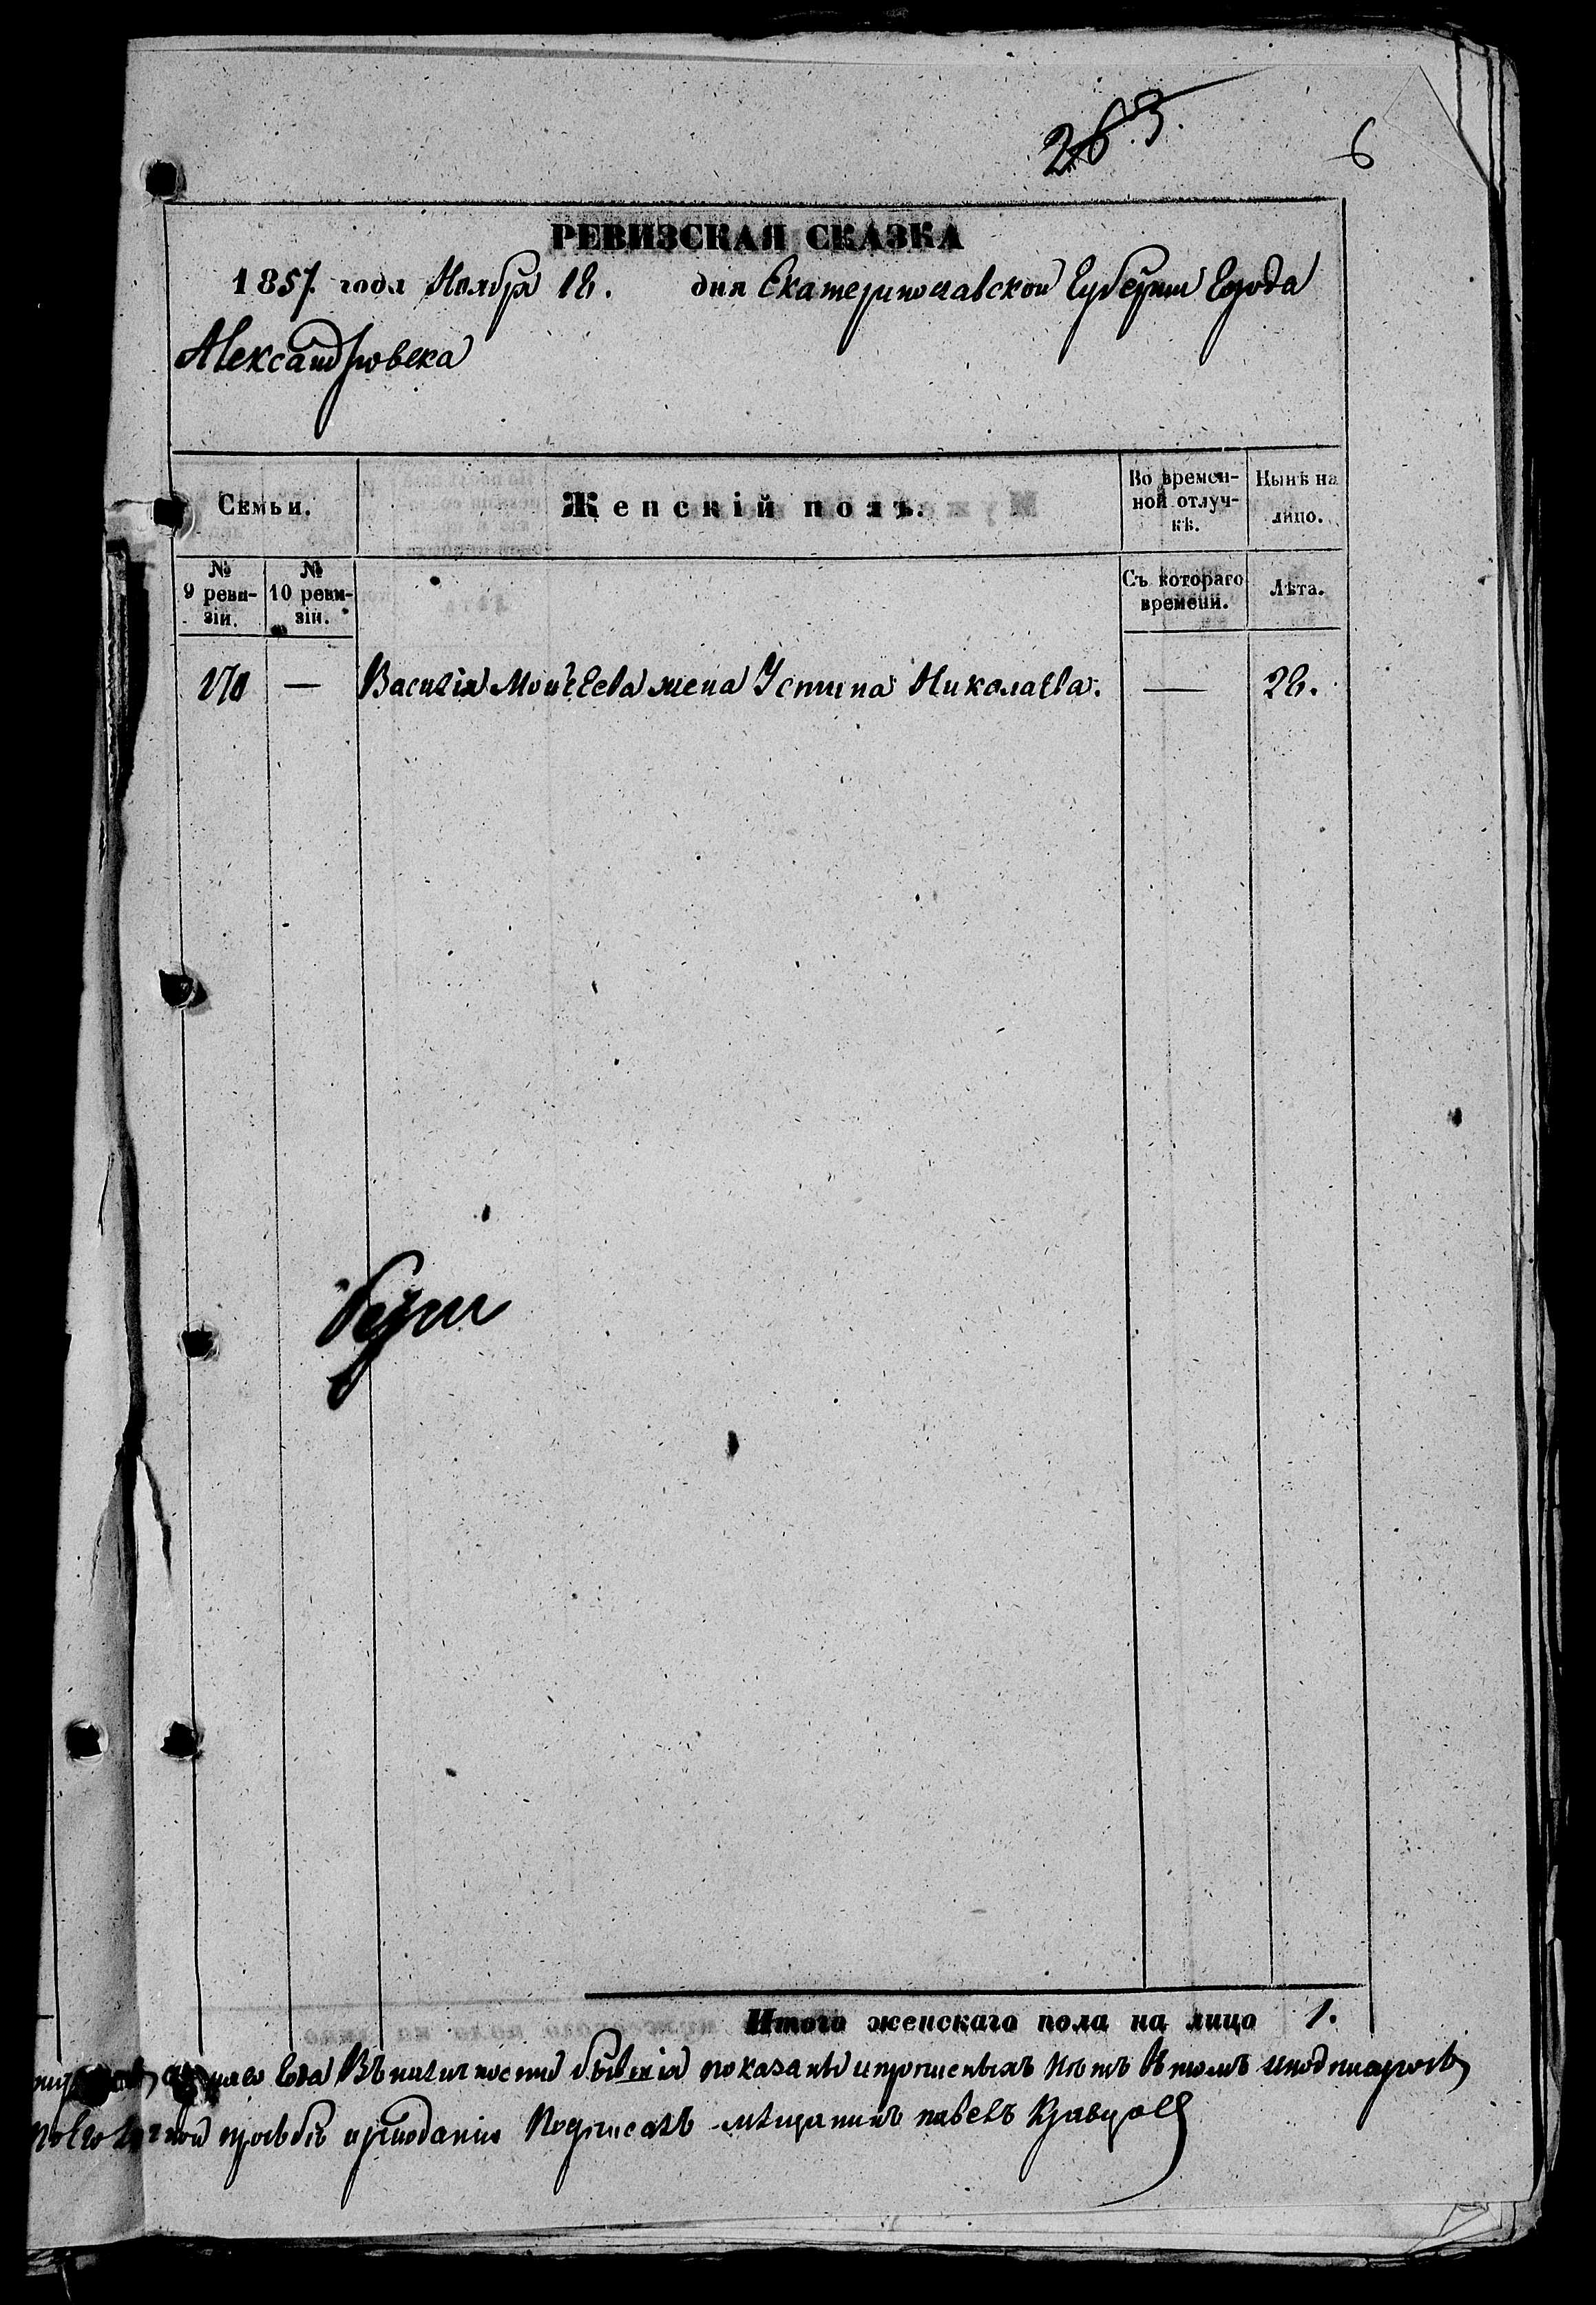 263.
6
РЕВИЗСКАЯ СКАЗКА
1857 года Ноября 18. дня Екатеринославской Губернии Города
Александровска
Семьи. Женскій полъ. Во времен-ной отлуч-кѣ. Нынѣ на лицо.
№ 9 реви-зіи. № 10 реви-зіи. Съ котораго времени. Лѣта.
170 — Василія Моисеева жена Устина Николаева. — 28.
Итого женскаго пола на лицо 1.
Въ наличности показаны и прописныхъ нѣтъ въ томъ
прозьбѣ Подписалъ мѣщанинъ павелъ Кравцовъ